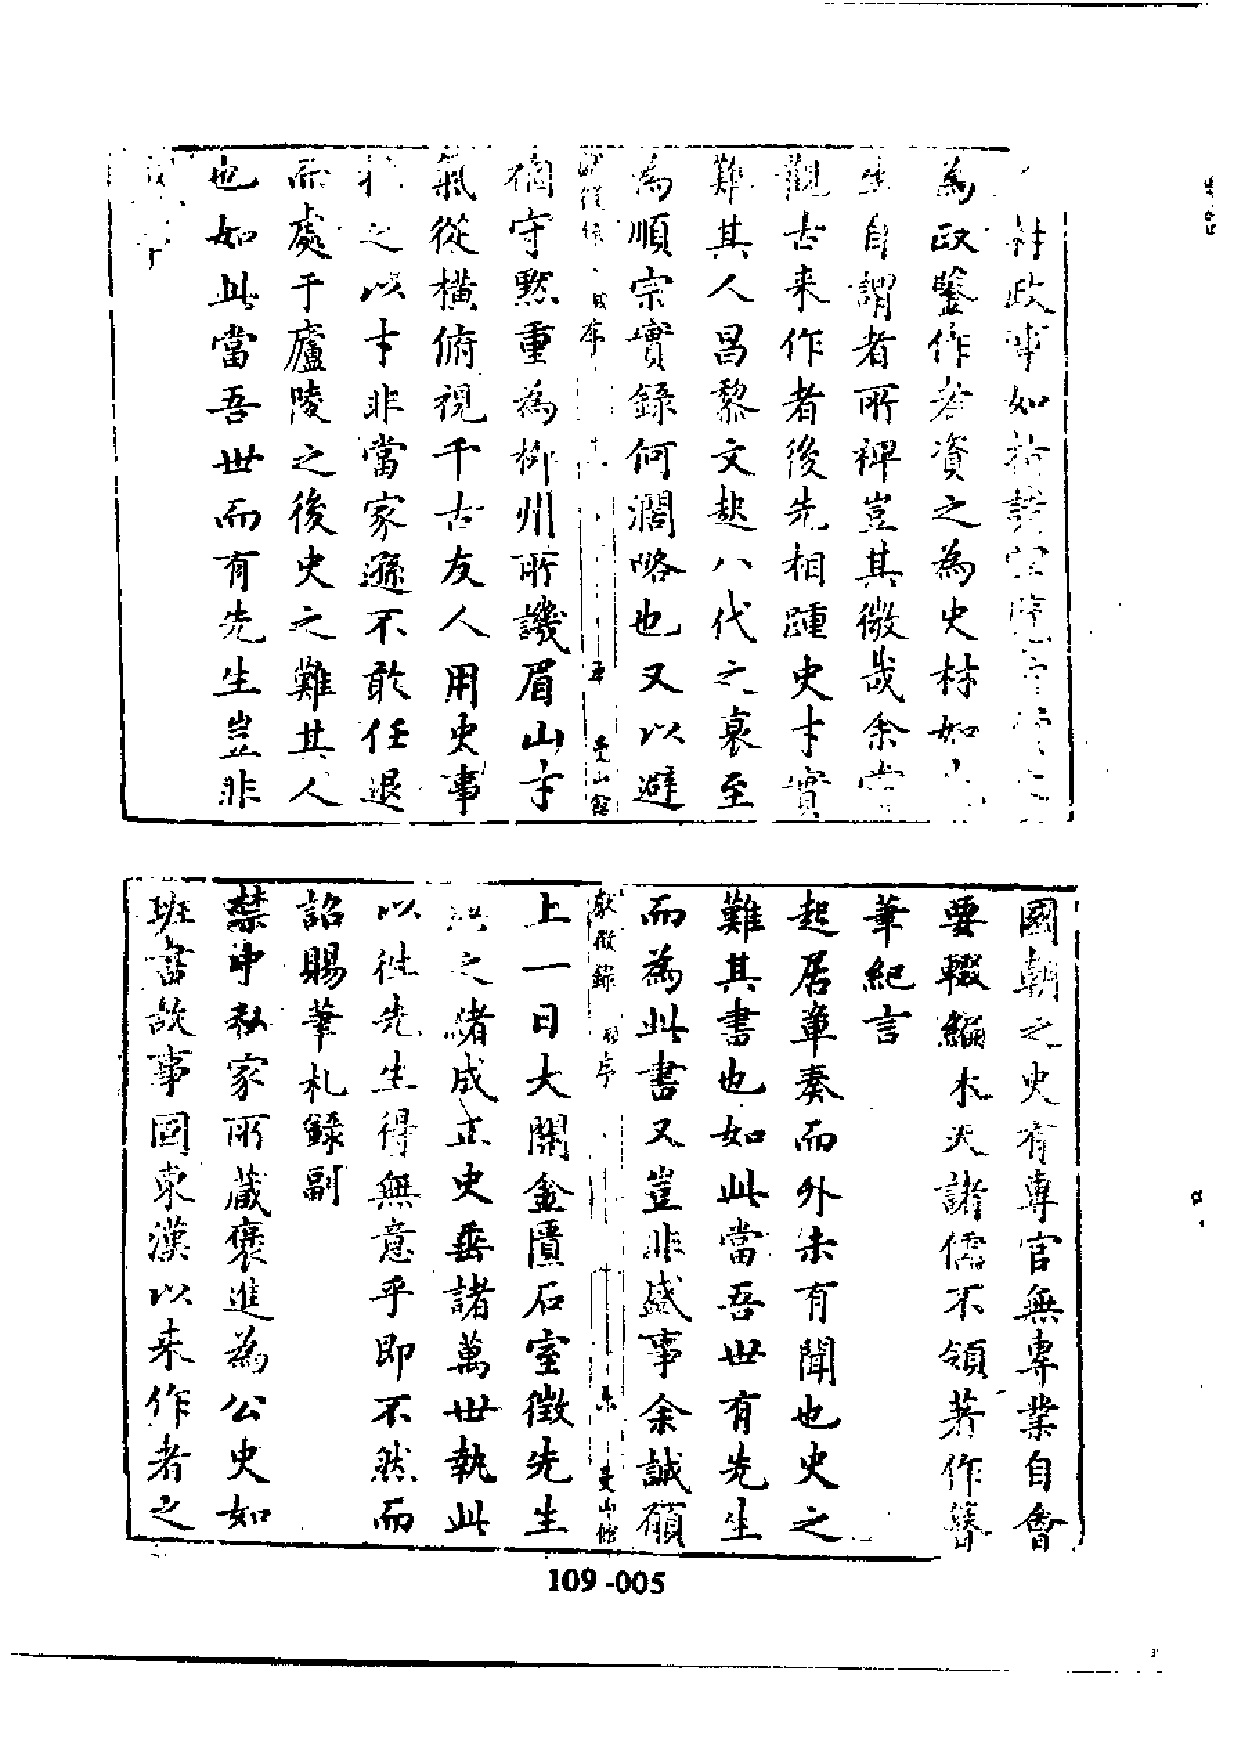 政事如
為政鑒作者資之為史材如
生自謂者所裨豈其微哉余嘗
觀古来作者後先相踵史才實
難其人昌黎文起八代之衰至
為順宗實錄何濶略也又以避
獻徵錄 序 五 曼山館
禍守默重為柳州所譏眉山才
氣從橫俯視千古友人用史事
之以才非當家遜不敢任退
而處于廬陵之後史之難其人
也如此當吾世而有先生豈非
國朝之史有專官無專業自會
要輟編木天諸儒不領著作簪
筆紀言
起居章奏而外未有聞也史之
難其書也如此當吾世有先生
而為此書又豈非盛事余誠願
獻徵錄 序 六 曼山館
上一日大開金匱石室徵先生
之緒成正史垂諸萬世執此
以往先生得無意乎即不然而
詔賜筆札錄副
禁中私家所蔵褒進為公史如
班書故事固東漢以来作者之
109-005